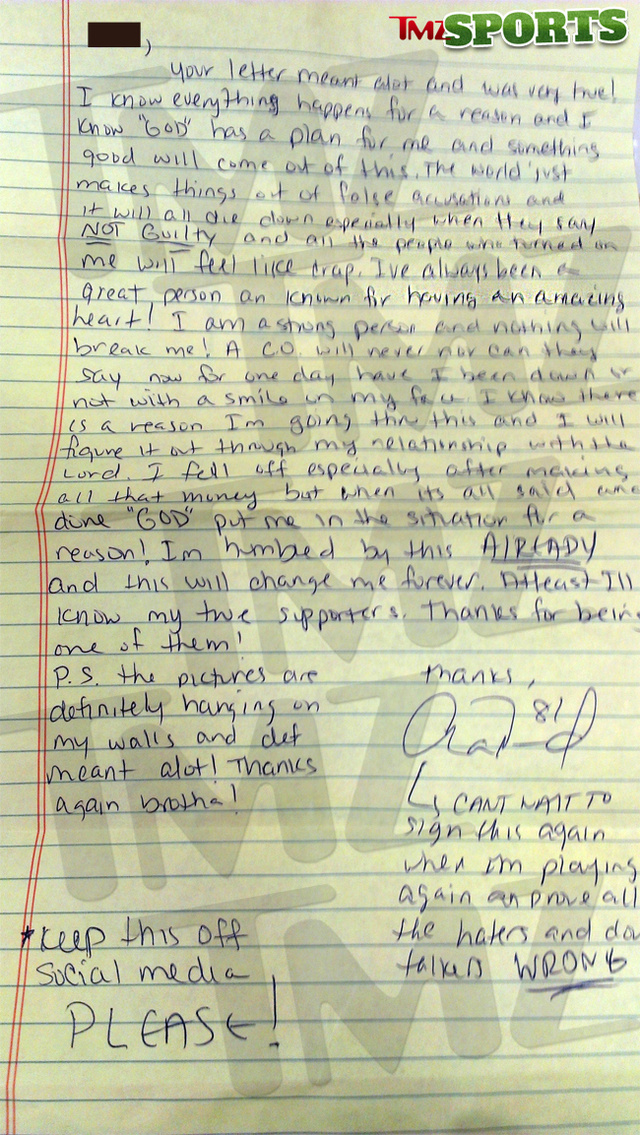 TMZ SPORTS
,
Your letter meant alot and was very true!
I know everything happens for a reason and I
know "GOD" has a plan for me and something
good will come out of this. The world just
makes things out of false accusations and
it will all die down especially when they say
NOT GUILTY and all the people who turned on
me will feel like crap. I've always been a
great person an known for having an amazing
heart! I am a strong person and nothing will
break me! A C.O. will never nor can they
say now for one day have I been down or
not with a smile on my face. I know there
is a reason Im going thru this and I will
figure it out through my relationship with the
Lord. I fell off especially after making
all that money but when its all said and
done "GOD" put me in the situation for a
reason! Im humbled by this AlREADY
and this will change me forever. Atleast Ill
know my true supporters. Thanks for being
one of them!
P.S. the pictures are
definitely hanging on
my walls and def
meant alot! Thanks
again brotha!
Thanks,
81
CANT WAIT TO
sign this again
when im playing
again an prove all
the haters and
talkers WRONG
*keep this off
social media
PLEASE!
TMZ
TMZ
TMZ
TMZ